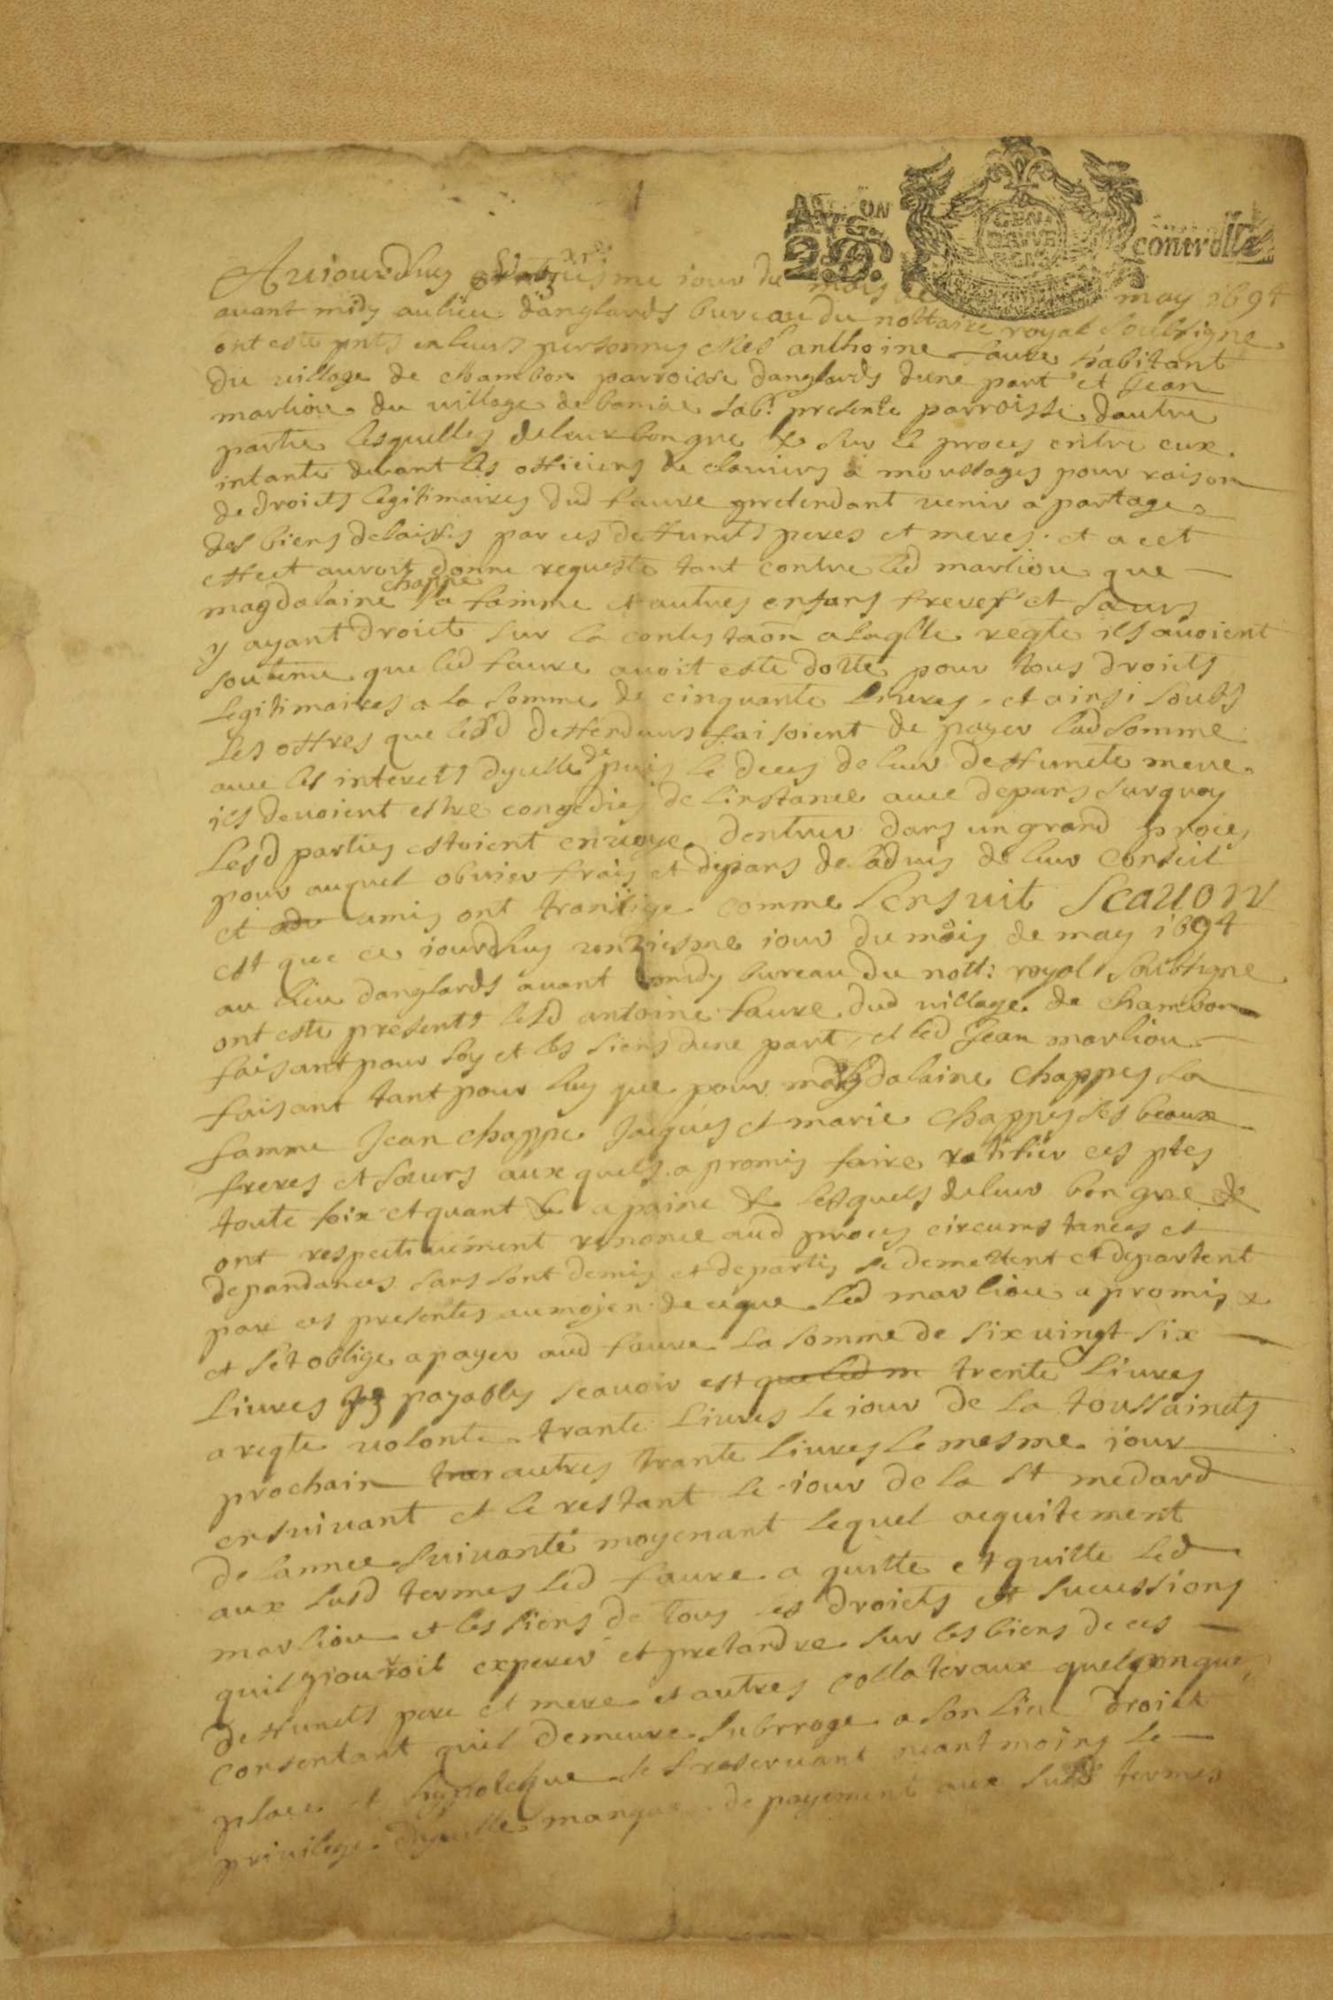 controlle
Auiourdhuy unziesme iour du mois de may 1694
auant midy au lieu danglards bureau du nottaire royal soubsigne
ont este pnts en leurs personnes Mes anthoine faure habitant
du village de chambon parroisse danglards dune part et Jean
marliou du village de habt presente parroisse dautre
partie lesquelles de leur bon gre & sur le proces entre eux
intante deuant les officiers de clauiers a moussages pour raison
de droicts legitimaires dud faure pretendant venir a partage
des biens delaisses par ces deffuncts peres et meres et a cet
effect auroit donne requeste tant contre led marliou que
magdalaine chappe sa famme et autres enfans freres et sœurs
y ayant droict sur la contestaōn a laqlle reqte ils auoient
soutenu que led faure auoit este dotte pour tous droicts
legitimaires a la somme de cinquante liures et ainsi soubs
les offres que lesd deffendurs faisoient de payer lad somme
auec les interets dycelle depuis le deces de leur deffuncte mere
ils deuoient estre congedies de linstance auec depans surquoy
lesd parties estoient en uoye dentrer dans un grand proces
pour auquel obuier frais et depans de laduis de leur conseil
et amis ont transige comme sensuit Scauoir
est que ce iourdhuy unziesme iour du mois de may 1694
au lieu danglards auant midy bureau du nott: royal soubsigne
ont este presents lesd antoine faure dud village de chambon
faisant pour soy et les siens dune part et led Jean marliou
faisant tant pour luy que pour magdalaine chappes sa
famme Jean chappe Jacques et marie chappes ses beaux
freres et sœurs auxquels a promis faire ratifier ces ptes
toute foix et quant & a paine & lesquels de leur bon gre &
ont respectiuement renonce aud proces circumstances et
depandances sans sont demis et departis se demettent et departent
par ces presentes au moyen de ce que led marliou a promis &
et sest oblige a payer aud faure la somme de six uingt six
liures payables scauoir est que led m trente liures
a reqte volonte trante liures le iour de la toussaincts
prochain autres trante liures le mesme iour
ensuiuant et le restant le iour de la st medard
de lannee suiuante moyenant lequel acquitement
aux susd termes led faure a quitte et quitte led
marliou et les siens de tous les droicts et sucussions
quil pouroit experer et pretandre sur les biens de ces
deffuncts pere et mere et autres collateraux quelconque
consentant quil demeure subrroge a son lieu droict
place et hypoteque se reseruant neantmoins le
priuilege dycelle manque de payement aux susd termes